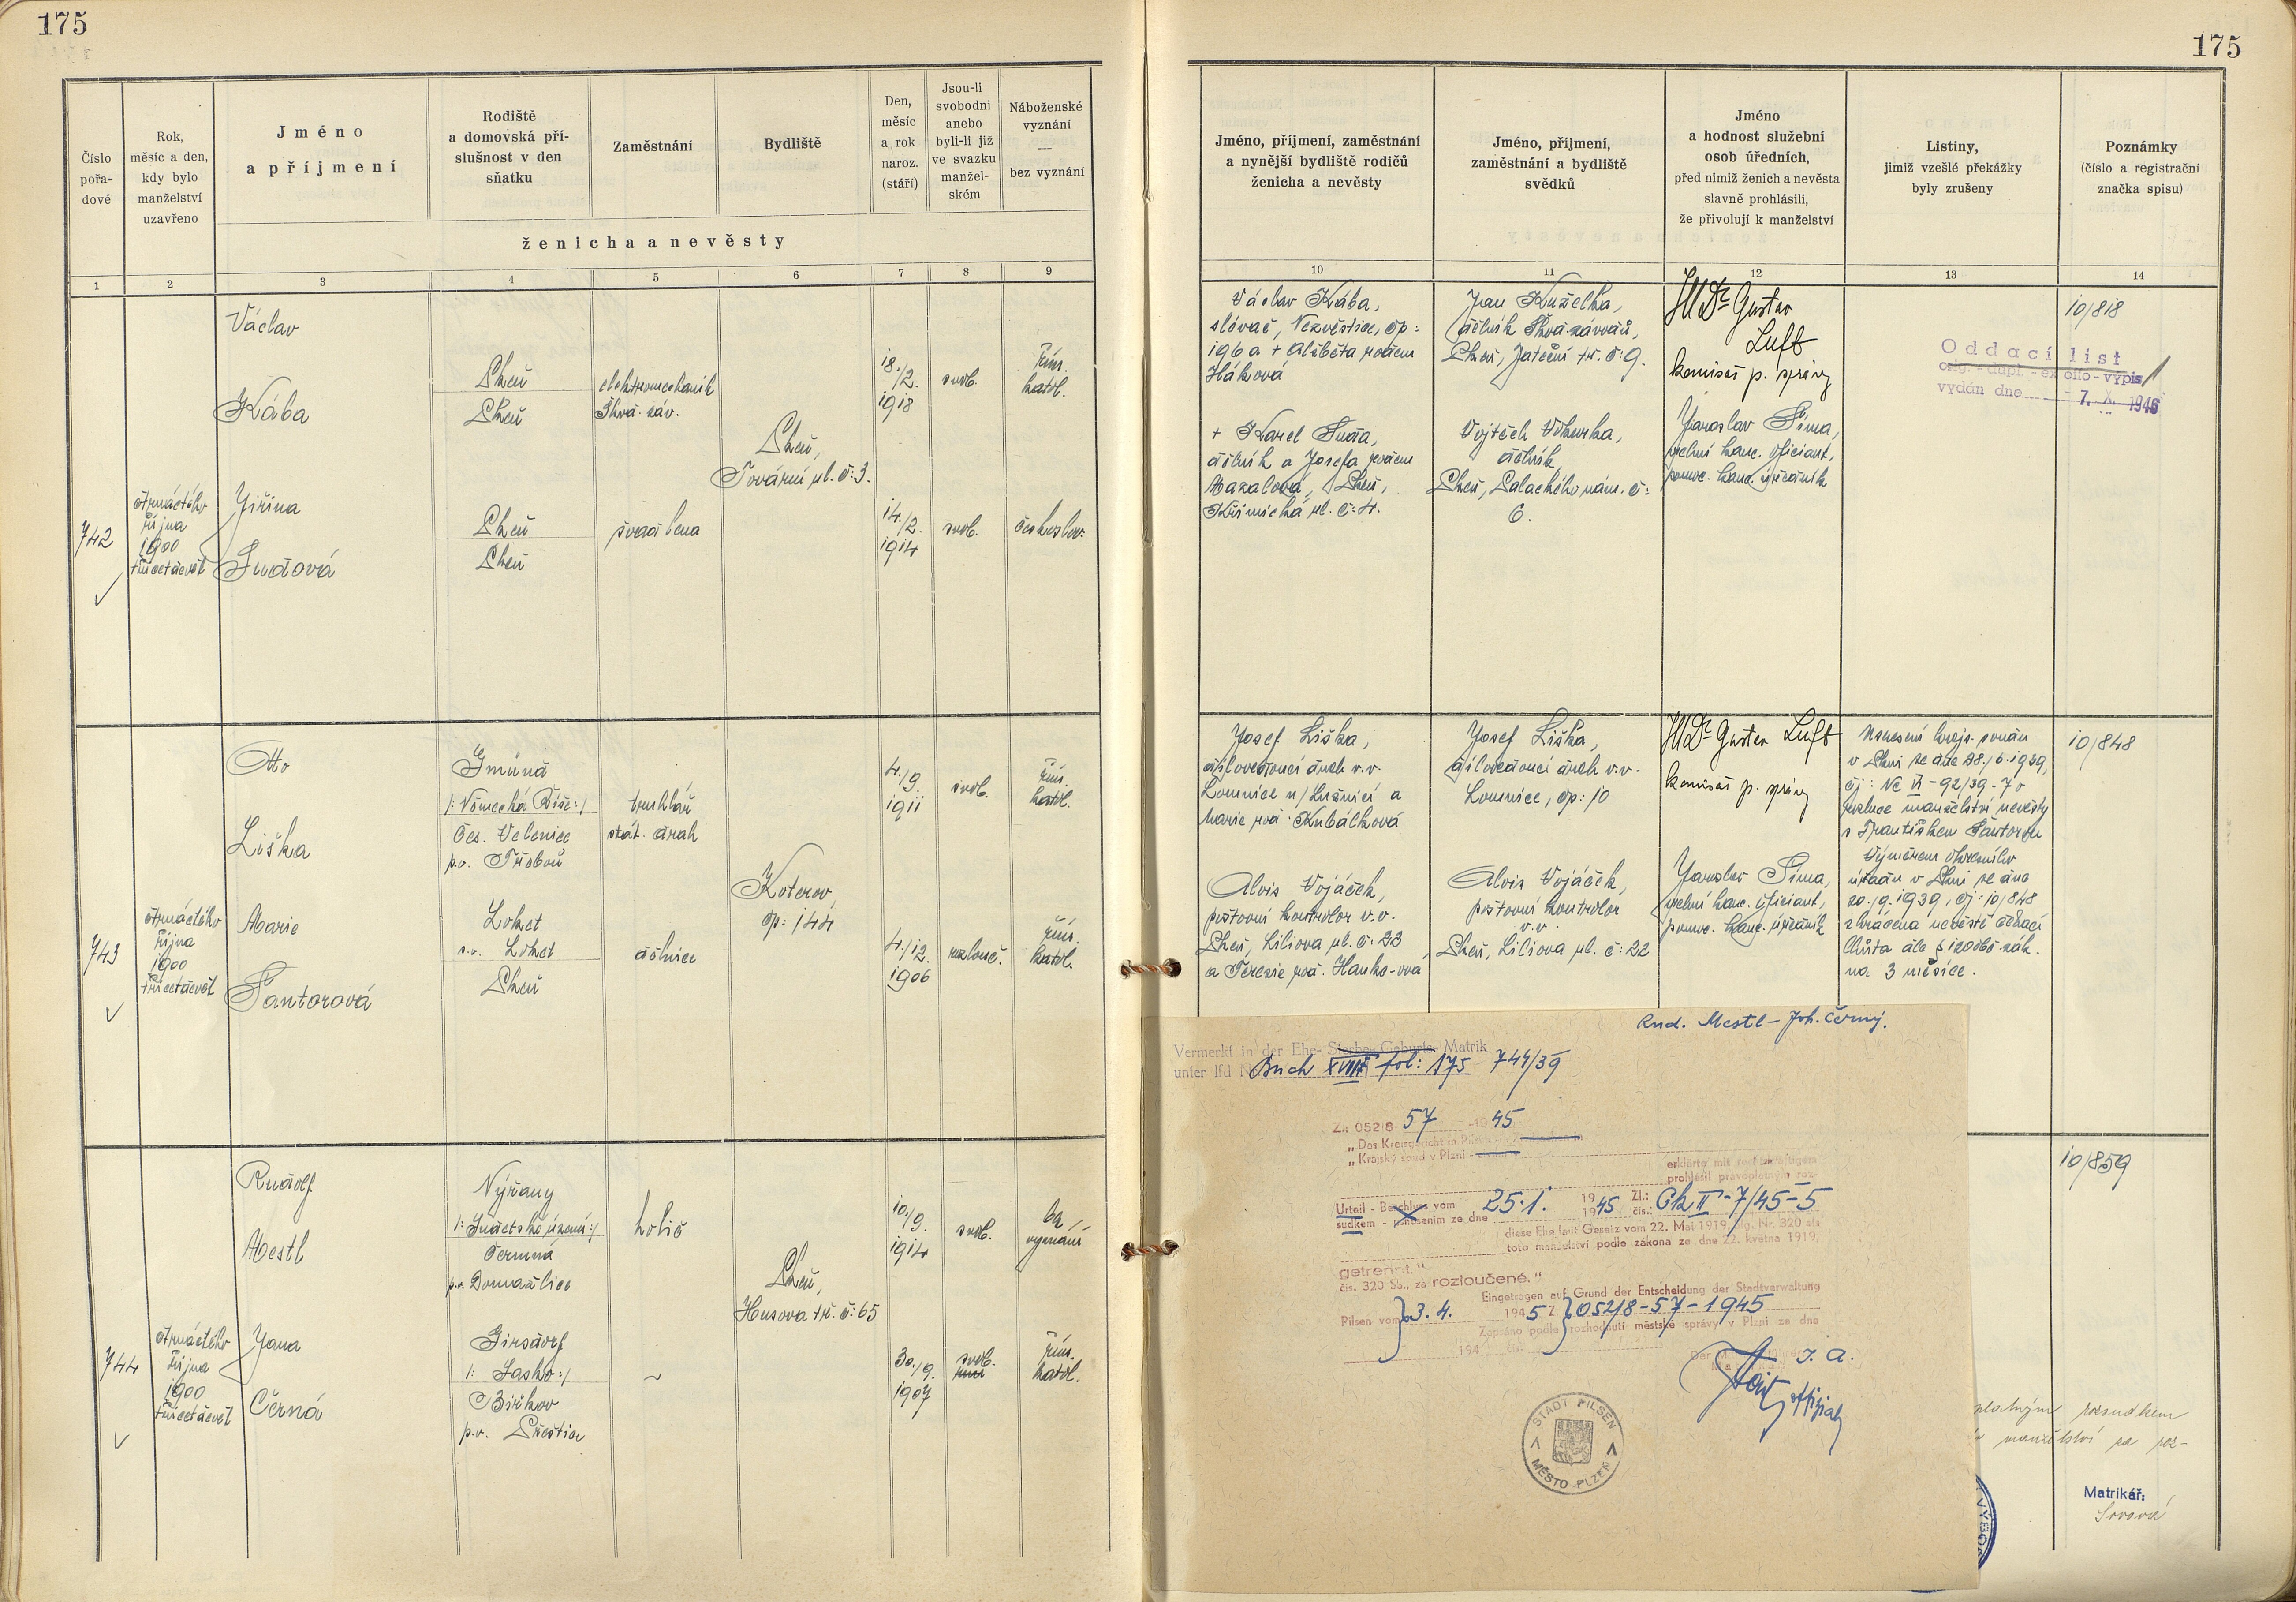 175
175
Číslo
pořa-
dové
Rok,
měsíc a den,
kdy bylo
manželství
uzavřeno
Jméno
a příjmení
Rodiště
a domovská pří-
slušnost v den
sňatku
Zaměstnání
Bydliště
Den,
měsíc
a rok
naroz.
(stáří)
Jsou-li
svobodni
anebo
byli-li již
ve svazku
manžel-
ském
Náboženské
vyznání
—
bez vyznání
ženicha a nevěsty
1 2 3 4 5 6 7 8 9
Jméno, příjmení, zaměstnání
a nynější bydliště rodičů
ženicha a nevěsty
Jméno, příjmení,
zaměstnání a bydliště
svědků
Jméno
a hodnost služební
osob úředních,
před nimiž ženich a nevěsta
slavně prohlásili,
že přivolují k manželství
Listiny,
jimiž vzešlé překážky
byly zrušeny
Poznámky
(číslo a registrační
značka spisu)
10 11 12 13 14
742
čtrnáctého
října
1900
třicetdevět
Václav
Kába
Plzeň
Plzeň
elektromechanik
Škod. záv.
18./2.
1918
svob.
řím.
katol.
Plzeň,
Tovární ul. č: 3.
Jiřina
Sudová
Plzeň
Plzeň
švadlena
14./2.
1914
svob.
českoslov.
Václav Kába,
slévač, Nezvěstice, čp:
196 a + Alžběta rozen
Háková
+ Karel Suda,
dělník a Josefa rozen
Mazalová, Plzeň,
Křimická ul. č: 4.
Jan Kuželka,
dělník Škod. závodů,
Plzeň, Jateční tř. č: 9.
Vojtěch Vokurka,
dělník
Plzeň, Palackého nám. č:
6.
JUDr Gustav
Luft
komisař p. správy
Jaroslav Šíma,
velní kanc. oficiant,
pomoc. kanc. úředník
Oddací list
orig. - dupl. - ex offo - výpis
vydán dne 7. X. 1946
10/818
743
čtrnáctého
října
1900
třicetdevět
Otto
Liška
Gmünd
/: Německá Říše :/
Čes. Velenice
p.o. Třeboň
truhlář
stát. drah
4./9.
1911
svob.
řím.
katol.
Koterov,
čp: 144
Marie
Šantorová
Loket
s.o. Loket
Plzeň
dělnice
4./12.
1906
rozlouč.
řím.
katol.
Josef Liška,
Lomnice n/Lužnicí a
Marie roz. Kubálková
Alois Vojáček,
poštovní kontrolor v.v.
Plzeň, Liliova ul. č. 23
a Terezie roz. Hanko-ova
Josef Liška,
Lomnice, čp: 10
Alois Vojáček,
poštovní kontrolor
v.v.
Plzeň, Liliova ul. č: 22
JUDr Gustav Luft
komisař p. správy
Jaroslav Šíma,
velní kanc. oficiant,
pomoc. kanc. úředník
Usnesení krajs. soudu
v Plzni ze dne 28./6. 1939,
čj: Nc VI - 92/39 - 7 o
rozluce manželství nevěsty
s Františkem Šantorou
Výměrem okresního
úřadu v Plzni ze dne
20./9. 1939, čj: 10/848
zkrácena nevěstě čekací
lhůta dle § 120 obč. zák.
na 3 měsíce.
10/848
744
čtrnáctého
října
1900
třicetdevět
Rudolf
Mestl
Nýřany
/: Sudetské území :/
Čermná
p.o. Domažlice
holič
10./9.
1914
svob.
bez
vyznání
Plzeň,
Husova tř. č: 65
Jana
Černá
Girsdorf
/: Sasko :/
Biřkov
p.o. Přeštice
~
30./9.
1907
svob.
řím.
katol.
10/859
Rud. Mestl - Joh. Černý.
Vermerkt in der Ehe- Sterbe- Geburts- Matrik
unter lfd N Buch XVIII fol: 175 744/39
Zn 052/8 57 -1945
„Das Kreisgericht in Pilsen
„Krajský soud v Plzni -
erklärte mit rechtskräftigem
prohlásil pravoplatným roz-
Urteil - Beschluss vom 25. I. 1945 Zl.: Ck II - 7/45 - 5
sudkem - usnesením ze dne 1945 čís.:
diese Ehe laut Gesetz vom 22. Mai 1919, Slg. Nr. 320 als
toto manželství podle zákona ze dne 22. května 1919,
getrennt."
čís. 320 Sb., za rozloučené."
Eingetragen auf Grund der Entscheidung der Stadtverwaltung
Pilsen vom 3. 4. 1945 Z 052/8 - 57 - 1945
Zapsáno podle rozhodnutí městské správy v Plzni ze dne
194 čís.
I. A.
STADT PILSEN
MĚSTO PLZEŇ
rozsudkem
manželství za roz-
Matrikář:
VÝBOR